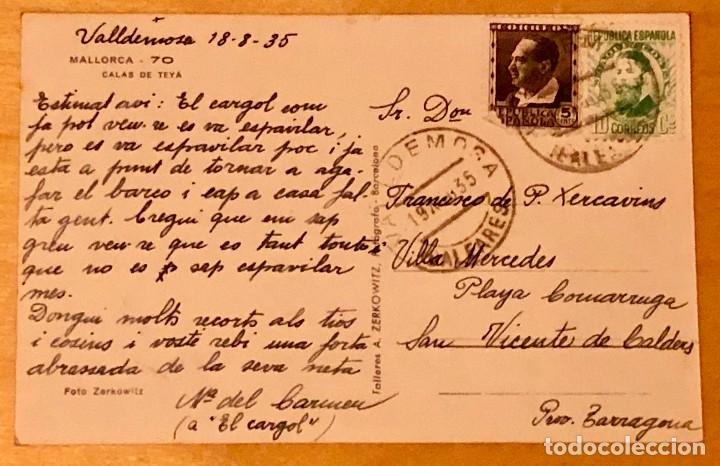 Valldemosa 18-8-35
MALLORCA - 70
CALAS DE TEYÁ
Estimat avi: El cargol com
ja pot veu-re es va espavilar,
pero es va espavilar poc i ja
esta a punt de tornar a aga-
far el barco i cap a casa fal-
ta gent. Cregui que em sap
greu veu-re que es tant tonta
que no es sap espavilar
mes.
Dongui molts recorts als tios
i cosins i voste rebi una forta
abrassada de la seva neta
Mª del Carmen
(a "El cargol")
Foto Zerkowitz
Talleres A. ZERKOWITZ, Fotógrafo - Barcelona
Sr. Don
Francisco de P. Xercavins
Villa Mercedes
Playa Comarruga
San Vicente de Calders
Prov. Tarragona
CORREOS
REPUBLICA
ESPAÑOLA
5
CENTS
REPUBLICA ESPAÑOLA
10 CORREOS Cs
VALDEMOSA
35
(BALEARES)